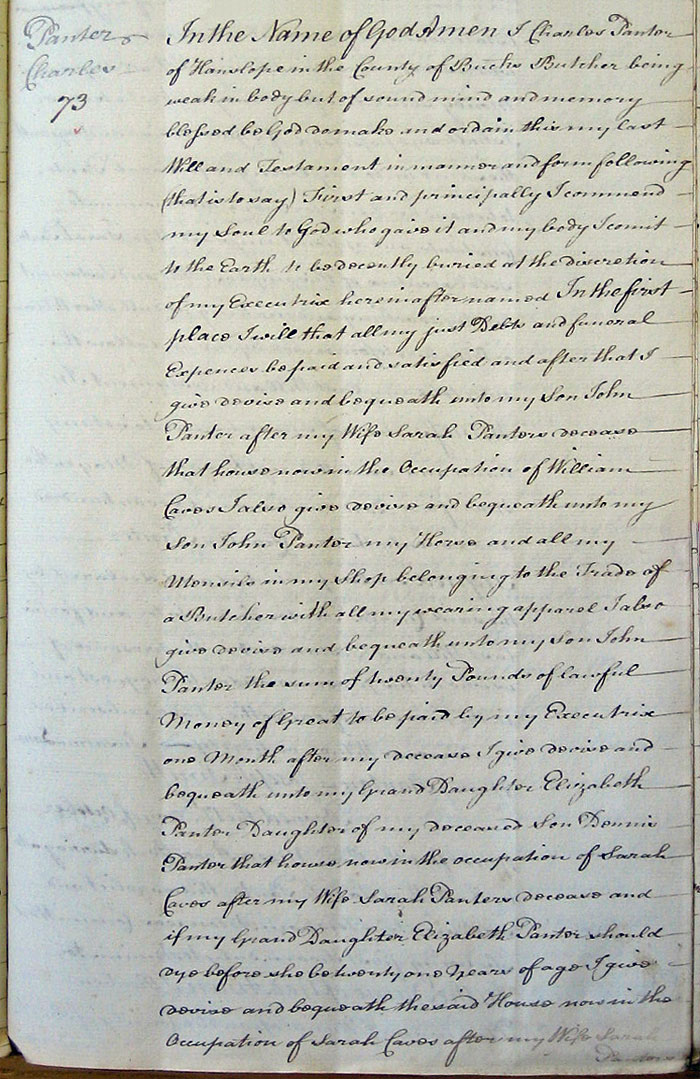 Panter
Charles
73
In the Name of God Amen I Charles Panter
of Hanslope in the County of Bucks Butcher being
weak in body but of sound mind and memory
blessed be God do make and ordain this my last
Will and Testament in manner and form following
(that is to say) First and principally I commend
my Soul to God who gave it and my body I comit
to the Earth to be decently buried at the discretion
of my Executrix hereinafter named In the first
place I will that all my just Debts and funeral
Expences be paid and satisfied and after that I
give devise and bequeath unto my Son John
Panter after my Wife Sarah Panters decease
that house now in the Occupation of William
Caves I also give devise and bequeath unto my
Son John Panter my Horse and all my
Utensils in my Shop belonging to the Trade of
a Butcher with all my wearing apparel I also
give devise and bequeath unto my son John
Panter the sum of twenty Pounds of lawful
Money of Great to be paid by my Executrix
one Month after my decease I give devise and
bequeath unto my Grand Daughter Elizabeth
Panter Daughter of my deceased Son Dennis
Panter that house now in the occupation of Sarah
Caves after my Wife Sarah Panters decease and
if my Grand Daughter Elizabeth Panter should
dye before she be twenty one Years of age I give
devise and bequeath the said House now in the
Occupation of Sarah Caves after my Wife Sarah
Panters